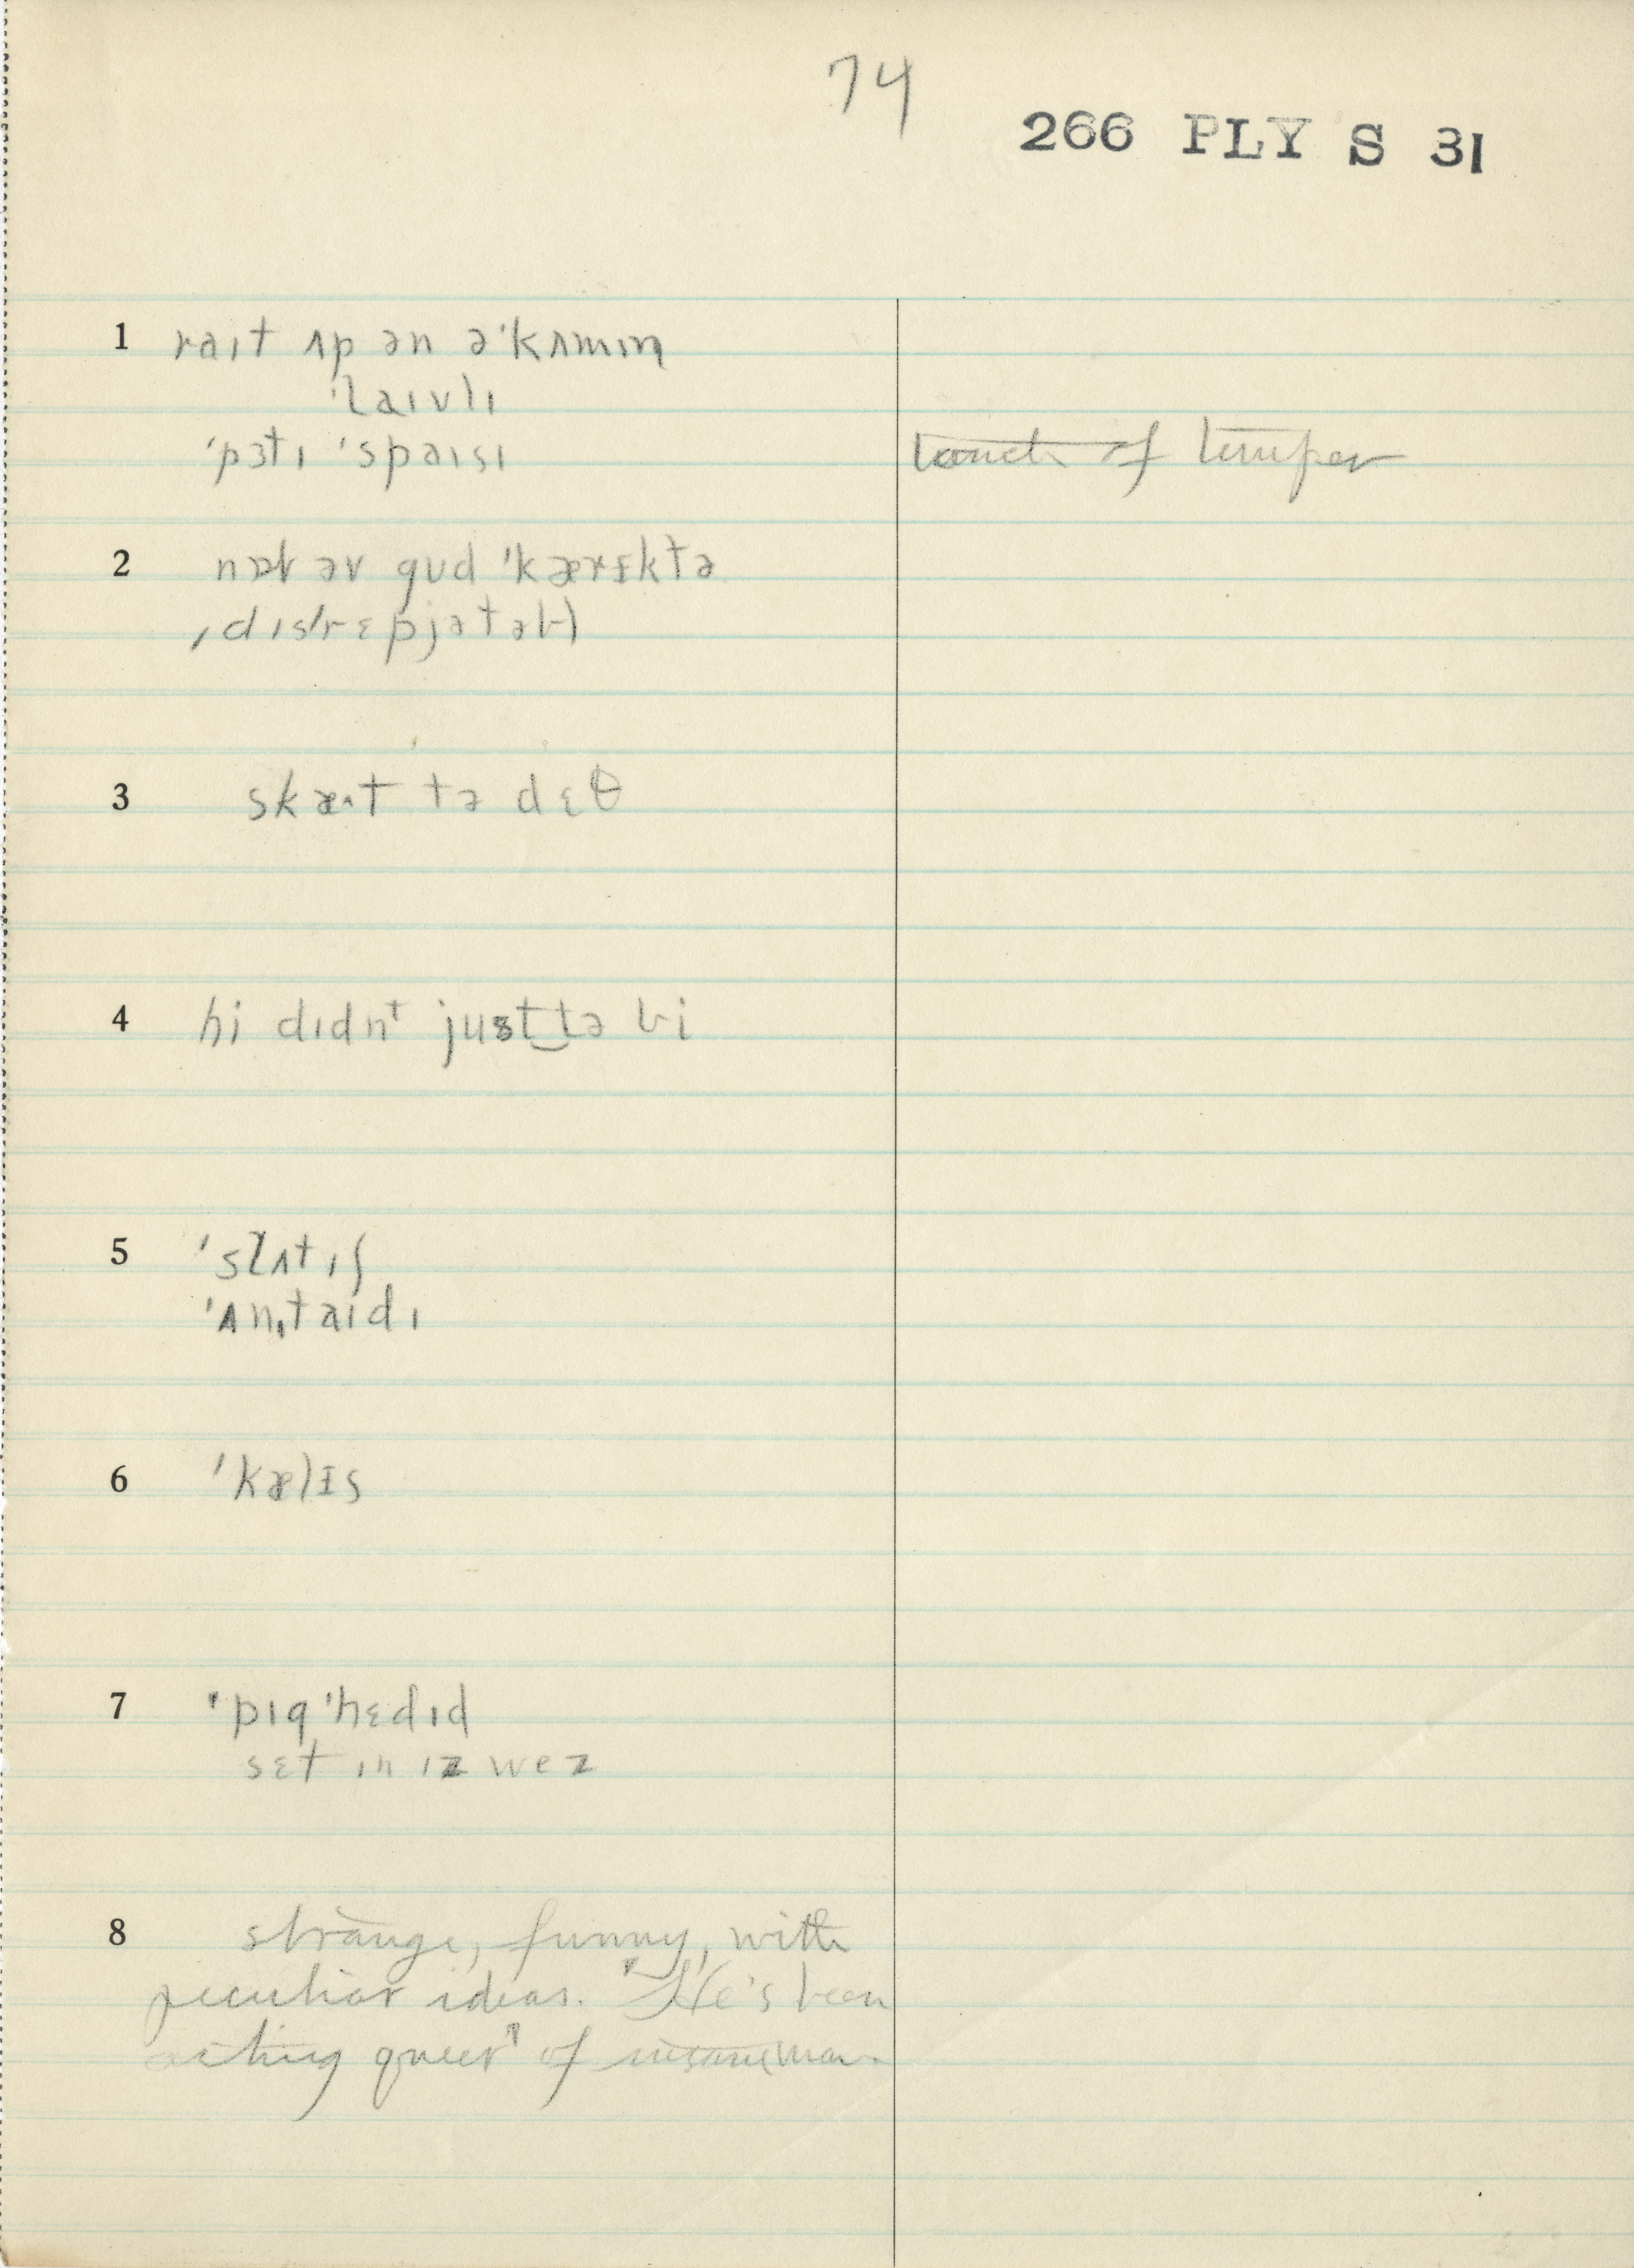 74
266 PLY S 31
1 raɪt ʌp ən ə'kʌmɪn
'laɪvlɪ
'pɜtɪ 'spaɪsɪ touch of temper
2 nɒt əv gʊd 'kærɪktə
ˌdɪs'rɛpjətəbl
3 skæ^t tə dɛθ
4 hi dɪdn't just‿tə bi
5 'slʌtɪʃ
'ʌnˌtaɪdɪ
6 'kælɪs
7 'pɪg'hɛdɪd
sɛt ɪn ɪz wez
8 strange, funny, with
peculiar ideas. "He's been
acting queer" of insane man